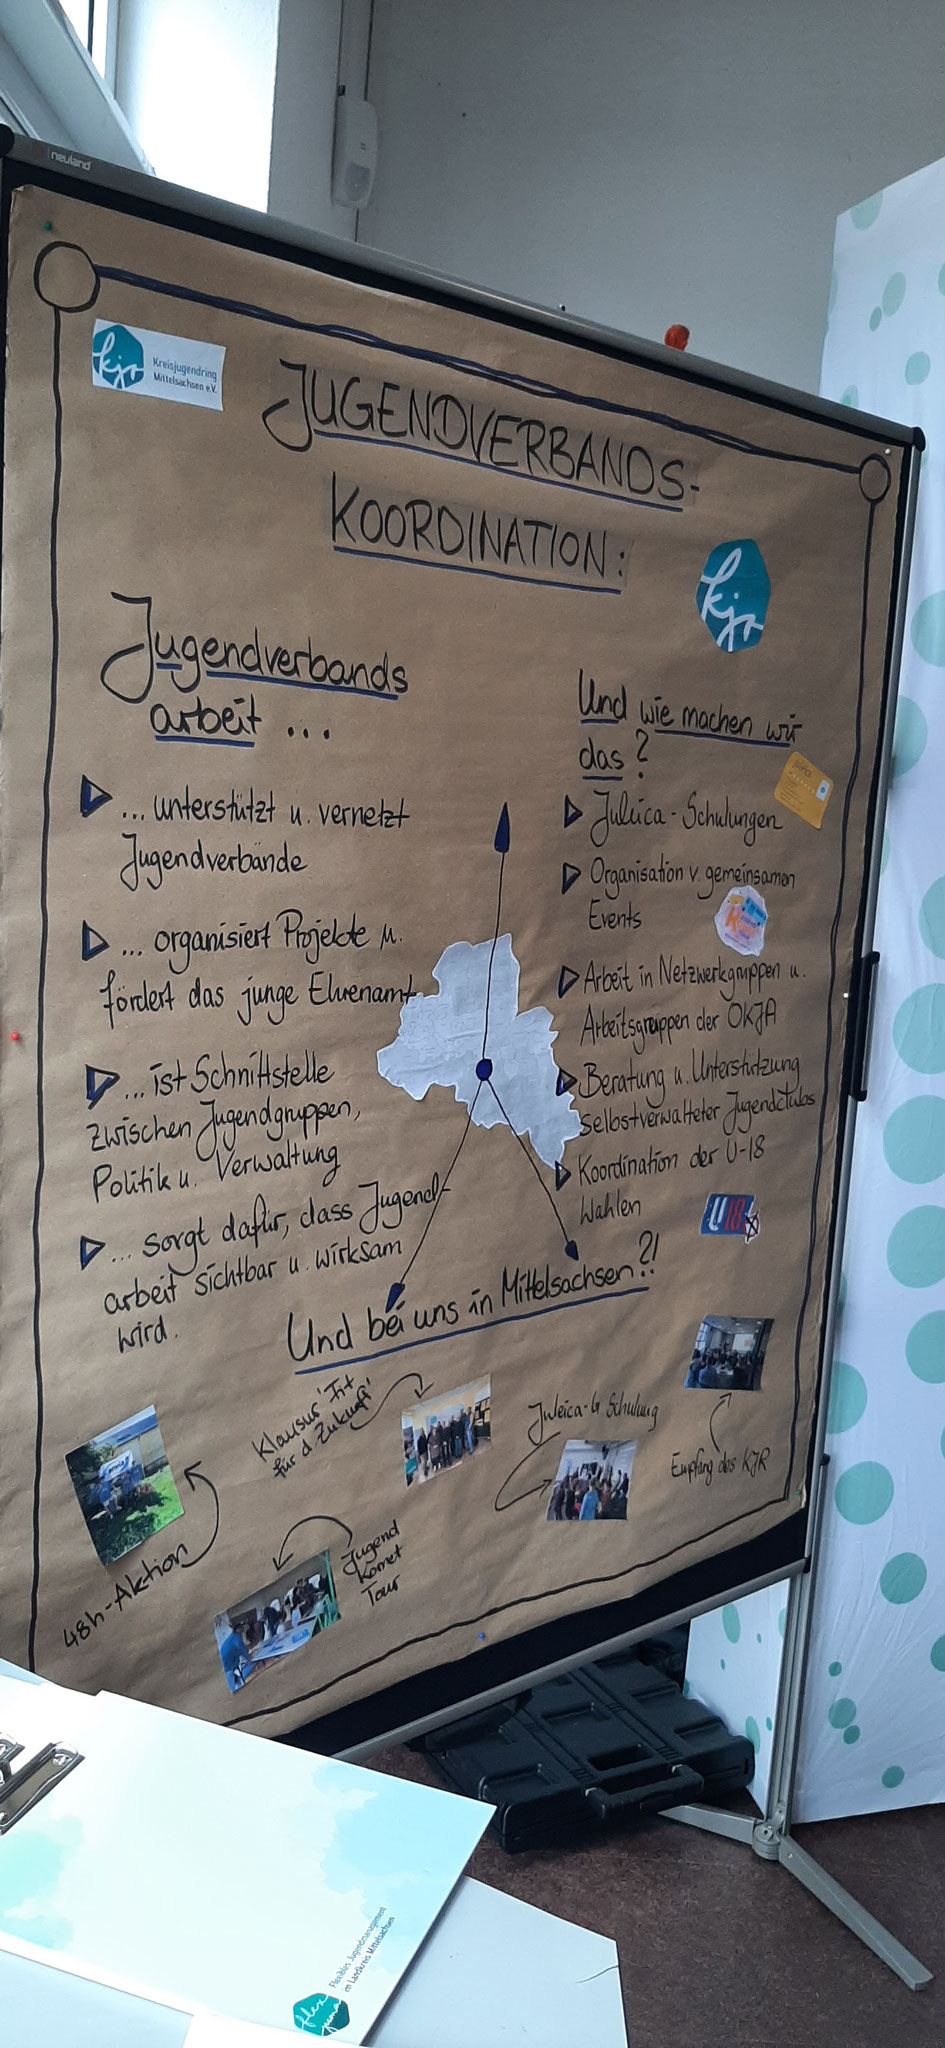 neuland
kjr
Kreisjugendring
Mittelsachsen e.V.
JUGENDVERBANDS-
KOORDINATION:
kjr
Jugendverbands
arbeit ...
... unterstützt u. vernetzt
Jugendverbände
... organisiert Projekte u.
fördert das junge Ehrenamt
... ist Schnittstelle
zwischen Jugendgruppen,
Politik u. Verwaltung
... sorgt dafür, dass Jugend-
arbeit sichtbar u. wirksam
wird.
Und wie machen wir
das?
Juleica-Schulungen
Organisation v. gemeinsamen
Events
Arbeit in Netzwerkgruppen u.
Arbeitsgruppen der OKJA
Beratung u. Unterstützung
selbstverwalteter Jugendclubs
Koordination der U-18
Wahlen
U18
Und bei uns in Mittelsachsen?!
48h-Aktion
Klausur "Fit
für d. Zukunft"
Jugend
Komet
Tour
Juleica-Schulung
Empfang des KJR
Flexibles Jugendmanagement
im Landkreis Mittelsachsen
flex
juma